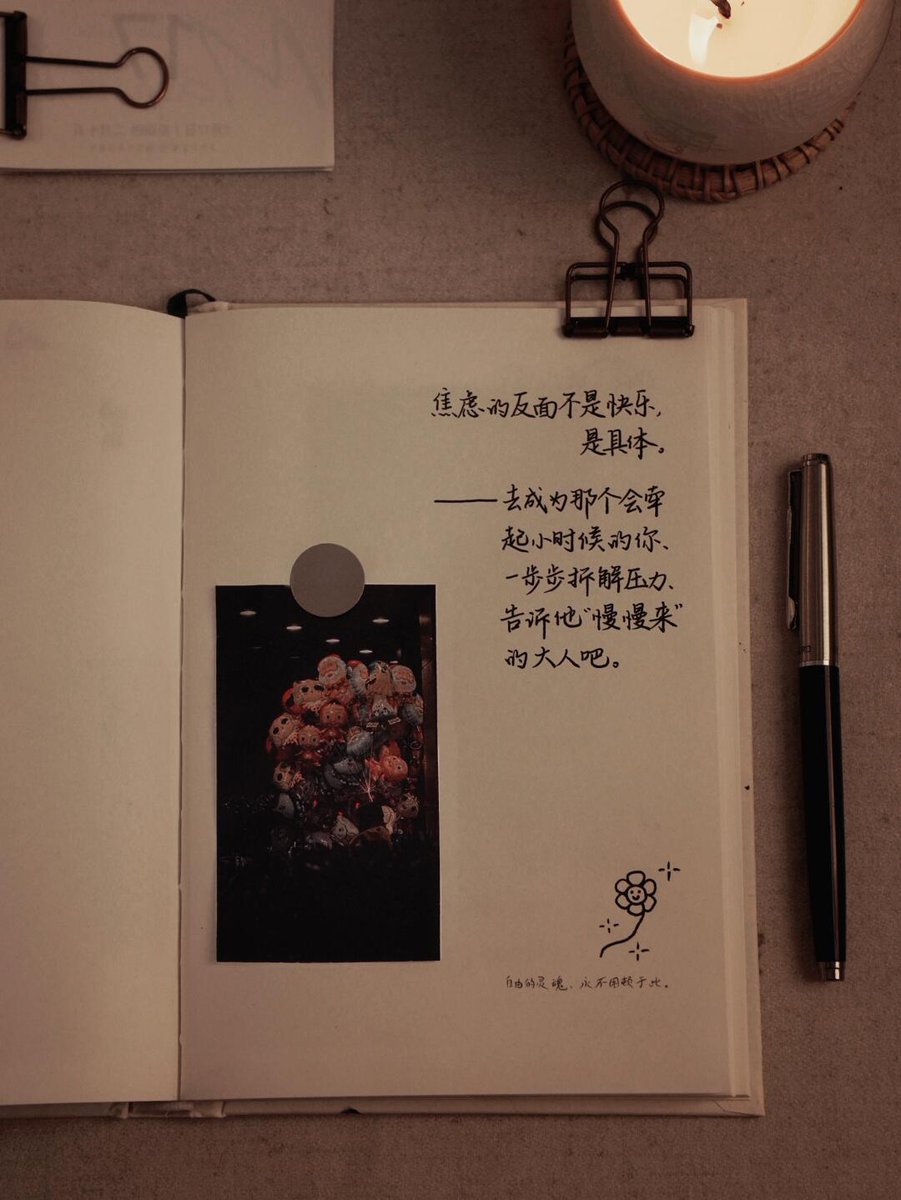 焦虑的反面不是快乐,
是具体。
——去成为那个会牵
起小时候的你、
一步步拆解压力、
告诉他“慢慢来”
的大人吧。
自由的灵魂、永不困顿于此。